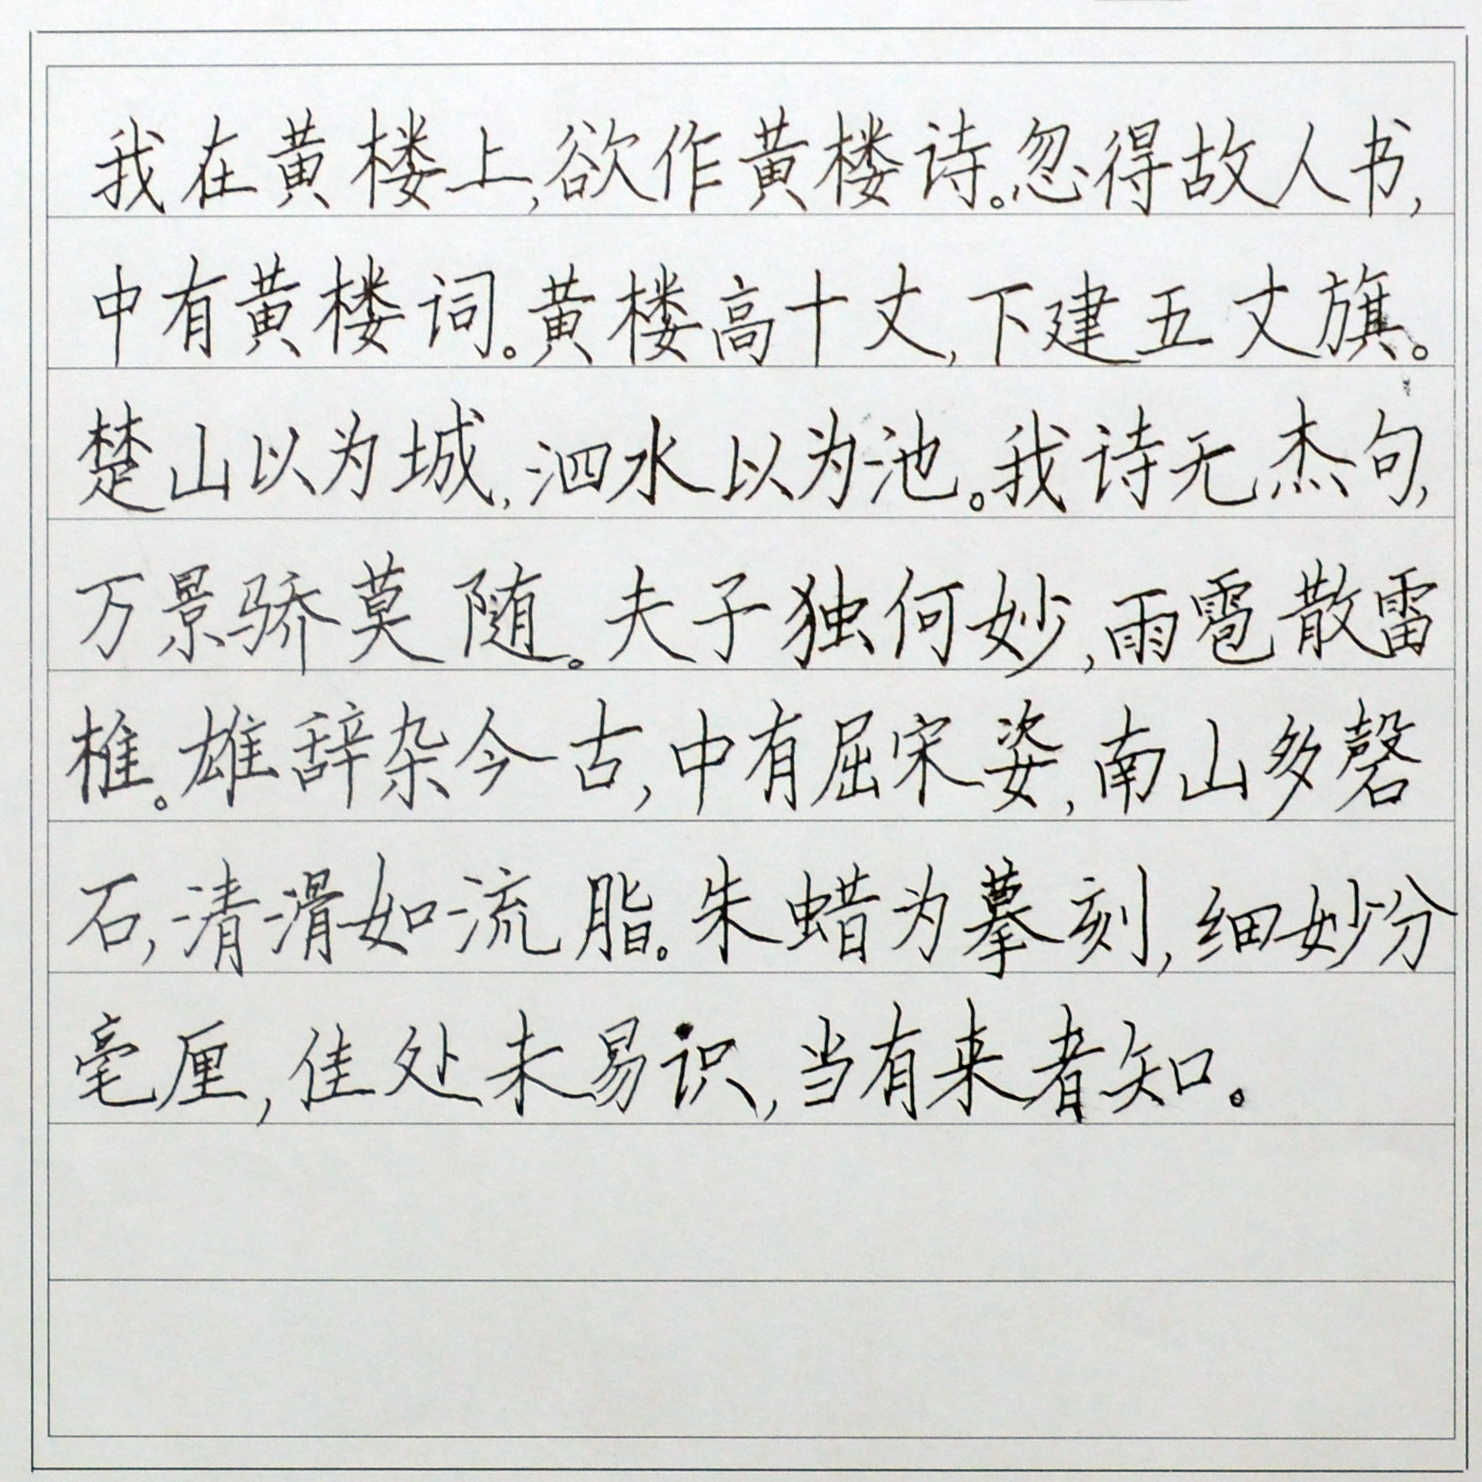 我在黄楼上,欲作黄楼诗。忽得故人书,
中有黄楼词。黄楼高十丈,下建五丈旗。
楚山以为城,泗水以为池。我诗无杰句,
万景骄莫随。夫子独何妙,雨雹散雷
椎。雄辞杂今古,中有屈宋姿,南山多磬
石,清滑如流脂。朱蜡为摹刻,细妙分
毫厘,佳处未易识,当有来者知。